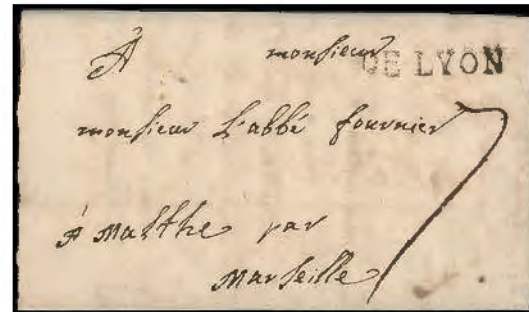 À monsieur
DE LYON
monsieur L'abbé fournier
7
A Malthe par
Marseille